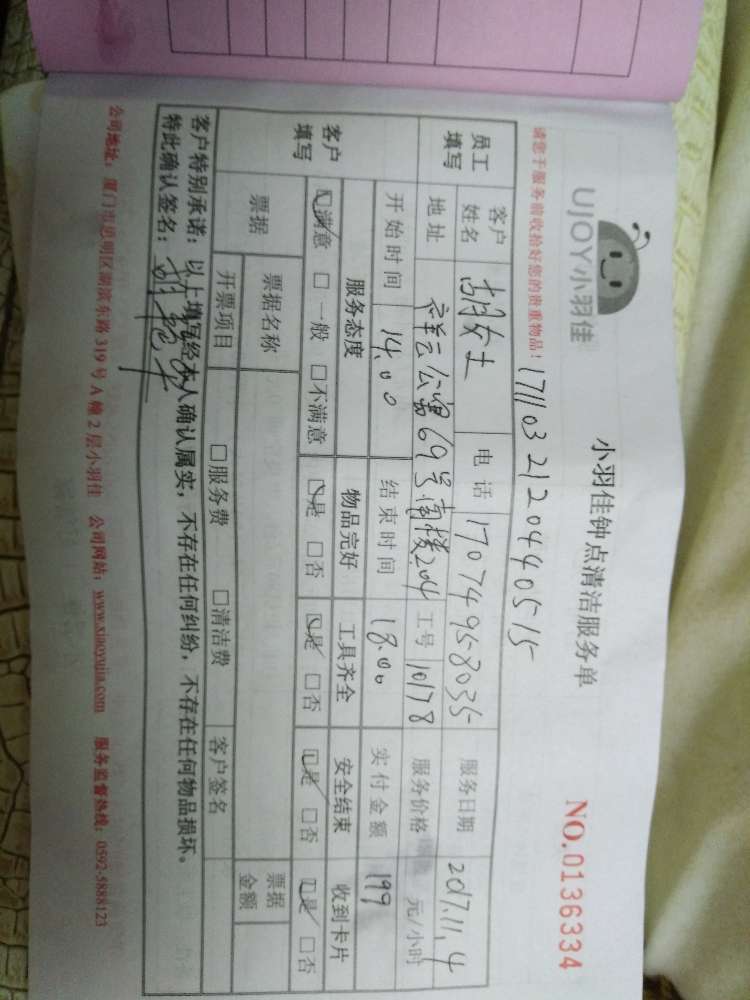 UJOY小羽佳
小羽佳钟点清洁服务单
NO.0136334
请您于服务前收拾好您的贵重物品!
1711032120440515
员工填写
客户姓名 胡女士 电话 17074958035 服务日期 2017.11.4
地址 公寓69号南楼204 工号 10178 服务价格 元/小时
开始时间 14.00 结束时间 18.00 实付金额 199
客户填写
服务态度 物品完好 工具齐全 安全结束 收到卡片
☑满意 □一般 □不满意 ☑是 □否 ☑是 □否 ☑是 □否 ☑是 □否
票据 票据名称 票据金额
开票项目 □服务费 □清洁费 客户签名
客户特别承诺:以上填写经本人确认属实,不存在任何纠纷,不存在任何物品损坏。
特此确认签名:
公司地址:厦门市思明区湖滨东路319号A幢2层小羽佳 公司网站:www.xiaoyujia.com 服务监督热线:0592-5888123